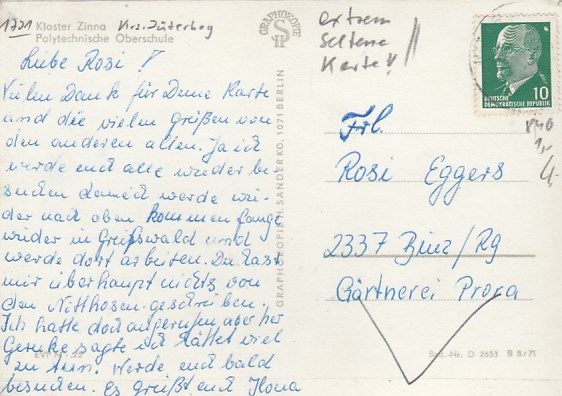 1721
Kloster Zinna Krs. Jüterbog
Polytechnische Oberschule
Liebe Rosi!
Vielen Dank für Deine Karte
und die vielen Grüßen von
den anderen allen. Ja ich
werde euch alle wieder be
suchen demit werde wie-
der nach oben kommen fange
wieder in Greifswald und
werde dort arbeiten. Du hast
mir überhaupt nichts von
den Nitthosen geschreiben.
Ich hatte doch angerufen aber Her
Gernke sagte ihr hättet viel
zu tun. Werde euch bald
besuchen. Es grüßt euch Ilona
EVP M -,25
GRAPHOKOPIE
GRAPHOKOPIE H. SANDER KG, 1071 BERLIN
extrem
seltene
Karte!!
DEUTSCHE
DEMOKRATISCHE REPUBLIK
10
840
1,-
4,-
Frl.
Rosi Eggers
2337 Binz/Rg
Gärtnerei Prora
Best.-Nr. D 2653 B 8/71